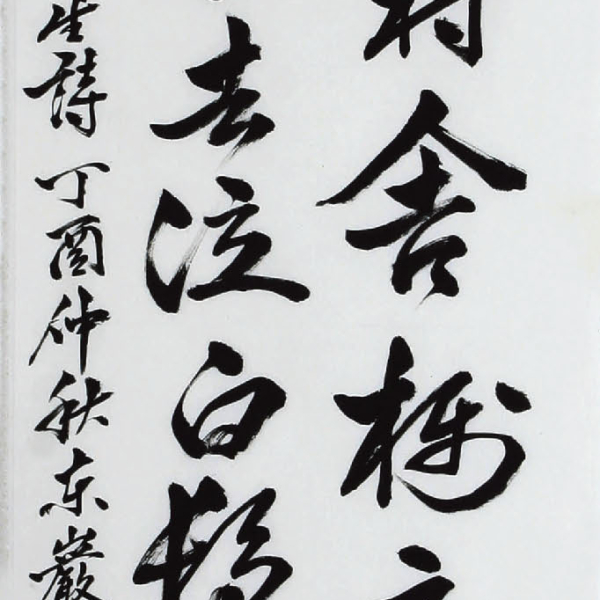 村舍
去泣白
生詩 丁酉仲秋 东巖